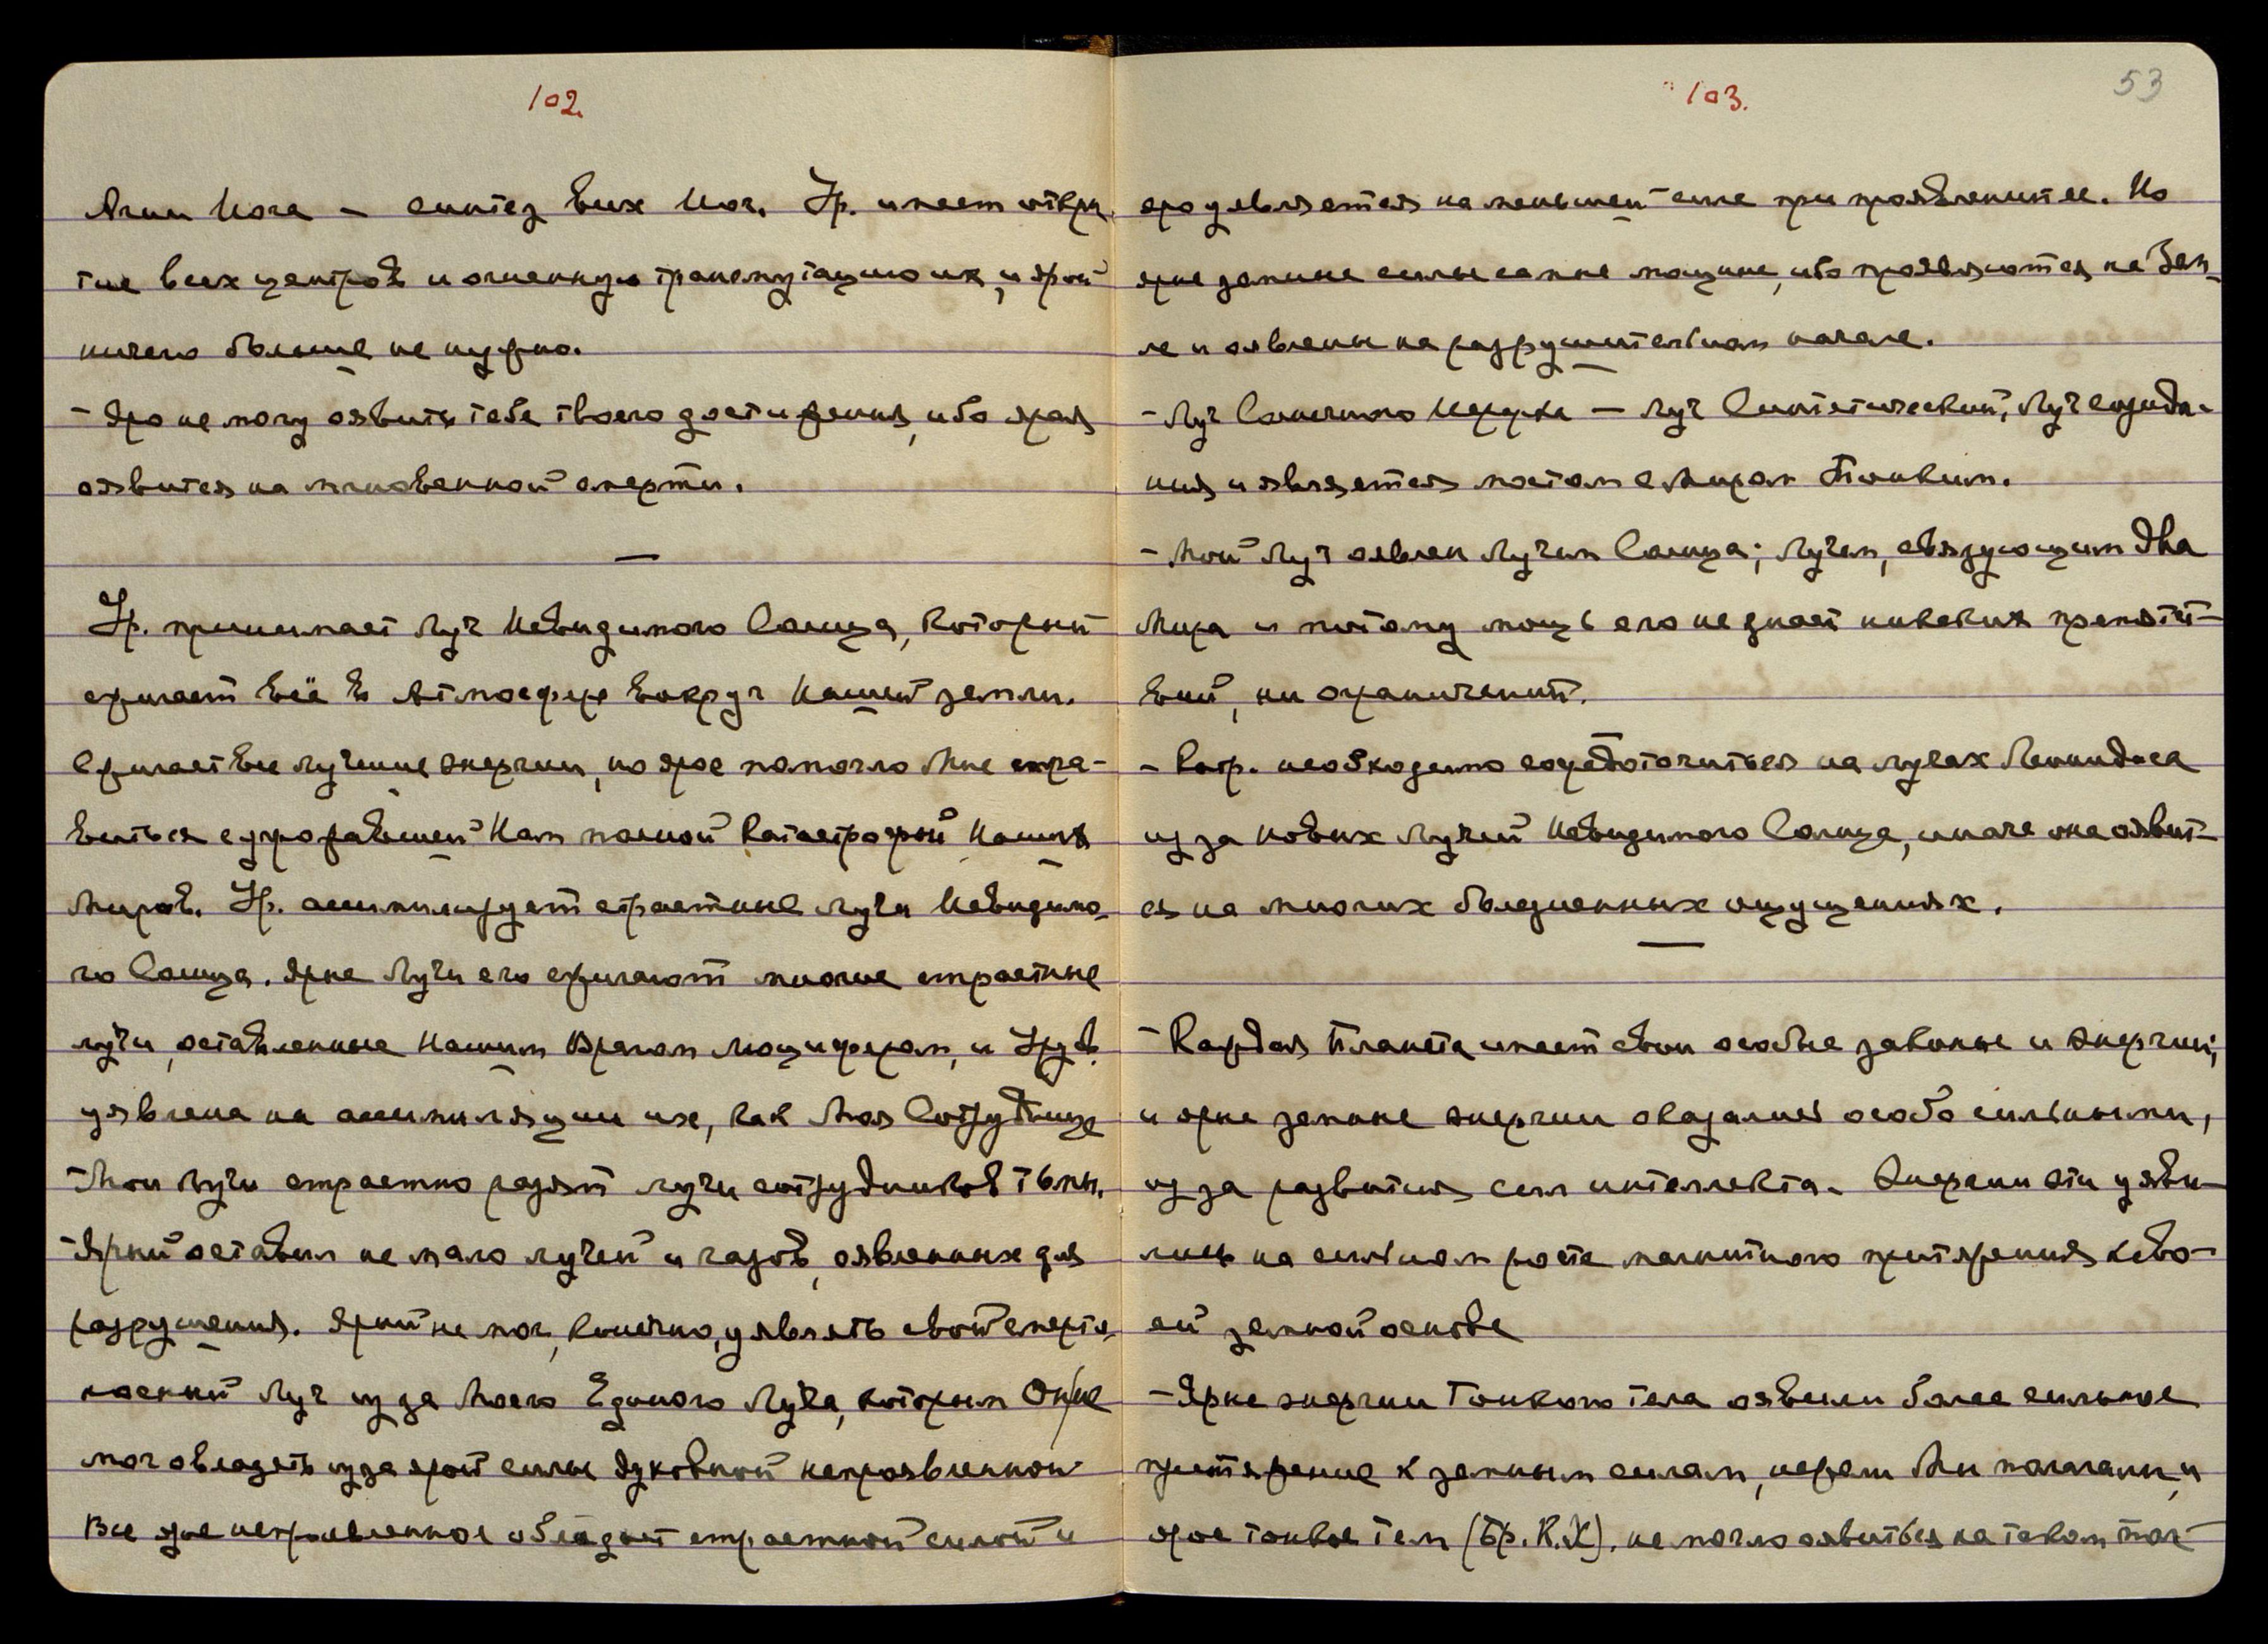 102.
Агни Йога — синтез всех Йог. Ур. имеет откры-
тие всех центров и огненную трансмутацию их, и ярой
ничего больше не нужно.
- Яро не могу оявить тебе твоего достижения, ибо ярая
оявится на мгновенной смерти.
—
Ур. принимает Луч Невидимого Солнца, который
сжигает всё в Атмосфере вокруг Нашей земли.
Сжигает все лучшие энергии, но ярое помогло Мне спра-
виться с угрожавшей Нам полной Катастрофой Наших
Миров. Ур. ассимилирует страстные лучи Невидимо-
го Солнца. Ярые Лучи его сжигают многие страстные
лучи, оставленные Нашим Врагом Люцифером, и Урув.
уявлена на ассимиляции их, как Моя Сотрудница
- Мои лучи страстно разят лучи сотрудников тьмы.
- Ярый оставил не мало лучей и газов, оявленных для
разрушения. Ярый не мог, конечно, уявлять свой смерто-
носный Луч из за Моего Единого Луча, которым Он не
мог овладеть из за ярой силы духовной непроявленной
Все ярое непроявленное обладает страстной силой и
103.
53
яро уявляется на меньшей силе при проявлении ее. Но
ярые земные силы самые мощные, ибо проявляются на Зем-
ле и оявлены на разрушительном начале.
- Луч Солнечного Иерарха — Луч Синтетический, Луч созида-
ния и является мостом с Миром Тонким.
- Мой Луч оявлен Лучом Солнца; Лучом, связующим два
Мира и потому мощь его не знает никаких препятст-
вий, ни ограничений.
- необходимо сосредоточиться на лучах
из за новых Лучей Невидимого Солнца, иначе она оявит-
ся на многих болезненных ощущениях.
—
- Каждая Планета имеет свои особые законы и энергии,
и ярые земные энергии оказались особо сильными,
из за развития сил интеллекта. Энергии эти уяви-
лись на сильном росте магнитного притяжения к сво-
ей земной основе
- Ярые энергии Тонкого тела оявили более сильное
притяжение к земным силам, нежели Мы полагали, и
ярое тонкое тело (Бр. К.Х). не могло оявиться на таком тон-